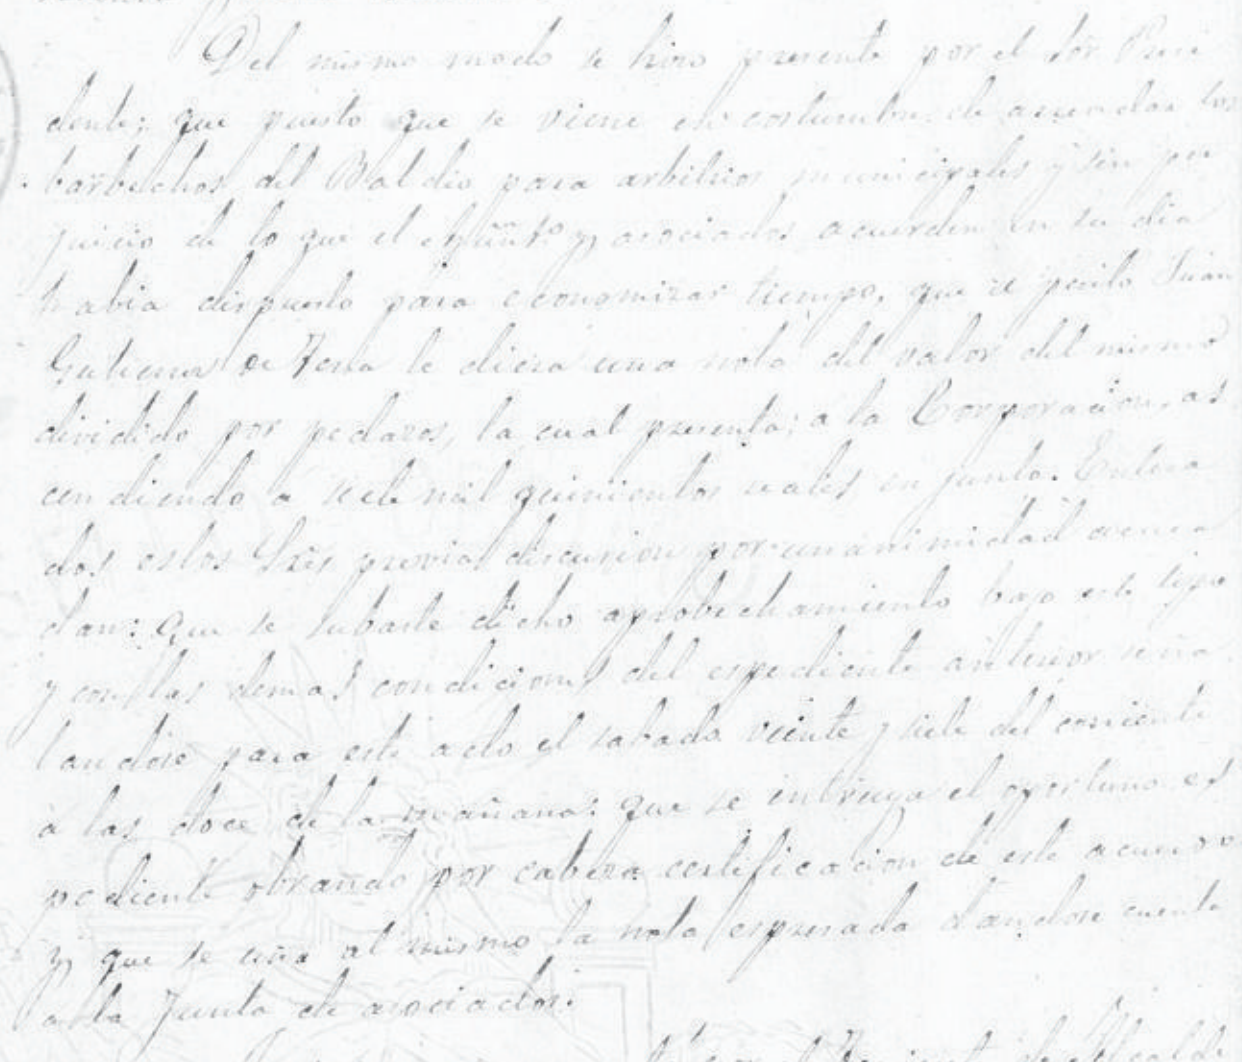 Del mismo modo se hizo presente por el Sor. Presi
dente; que puesto que se viene en costumbre de arrendar los
barbechos del Baldio para arbitrios municipales y sin per
juicio de lo que el Ayuñtº y asociados acuerden en su dia
habia dispuesto para economizar tiempo, que el perito Juan
Gutierrez de Tena le diera una nota del valor del mismo
dividido por pedazos, la cual presenta; a la Corporacion, as
cendiendo a siete mil quinientos reales en junto. Entera
dos estos Sres previa discusion por unanimidad acuer
dan: Que se subaste dicho aprobechamiento bajo este tipo
y con las demas condiciones del espediente anterior seña
landose para este acto el sabado veinte y siete del corriente
á las doce de la mañana: que se intruya el oportuno es
pediente obrando por cabeza certificacion de este acuerdo
y que se una al mismo la nota espresada dandose cuenta
a la Junta de asociados.